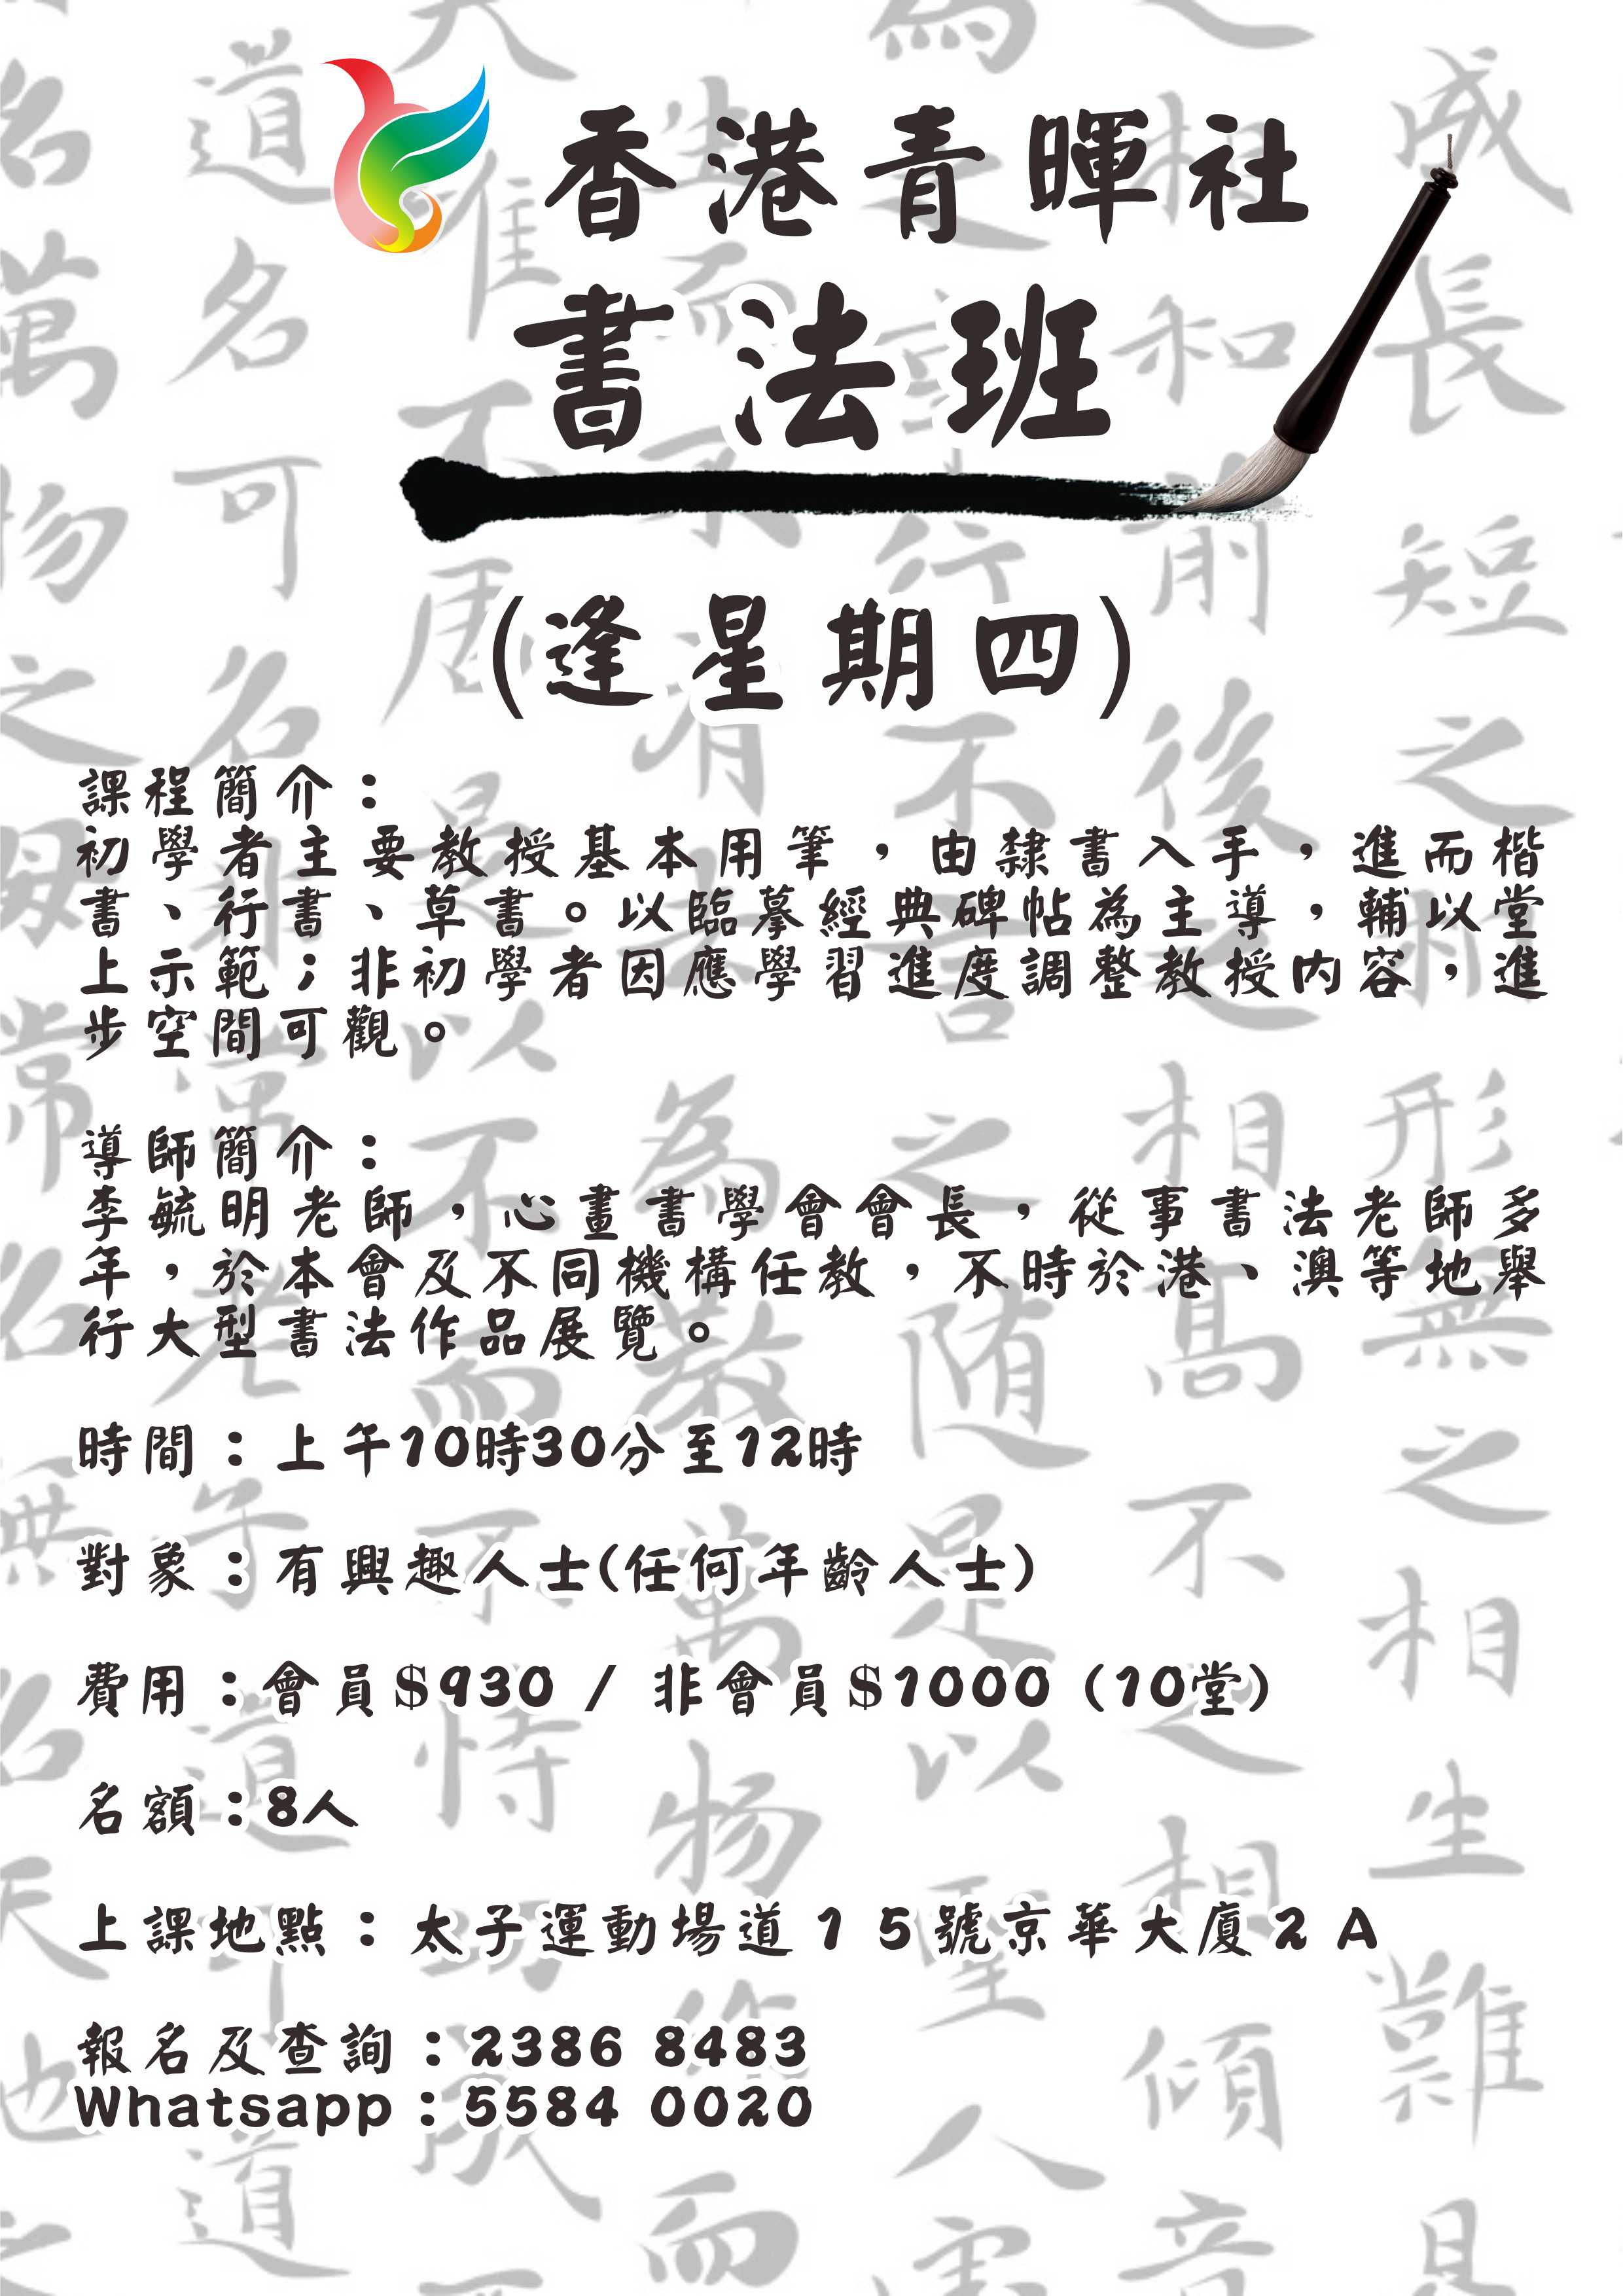 香港青暉社
書法班
(逢星期四)
課程簡介：
初學者主要教授基本用筆，由隸書入手，進而楷
書、行書、草書。以臨摹經典碑帖為主導，輔以堂
上示範；非初學者因應學習進度調整教授内容，進
步空間可觀。
導師簡介：
李毓明老師，心畫書學會會長，從事書法老師多
年，於本會及不同機構任教，不時於港、澳等地舉
行大型書法作品展覽。
時間：上午10時30分至12時
對象：有興趣人士(任何年齡人士)
費用：會員$930 / 非會員$1000 (10堂)
名額：8人
上課地點：太子運動場道15號京華大廈2A
報名及查詢：2386 8483
Whatsapp：5584 0020